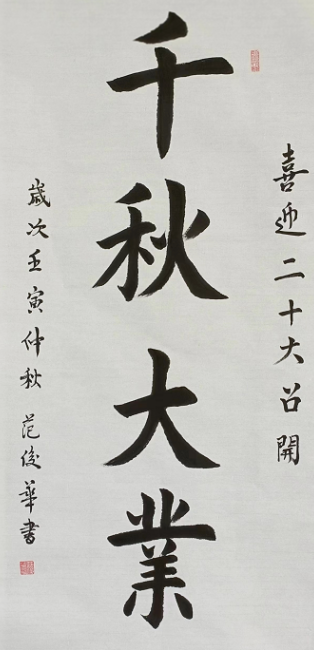 喜迎二十大召開
千秋大業
歲次壬寅仲秋 范俊華書